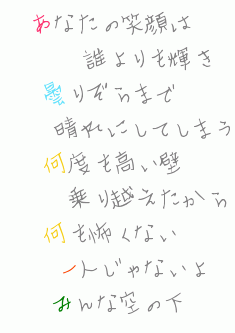 あなたの笑顔は
誰よりも輝き
曇りぞらまで
晴れにしてしまう
何度も高い壁
乗り越えたから
何も怖くない
一人じゃないよ
みんな空の下